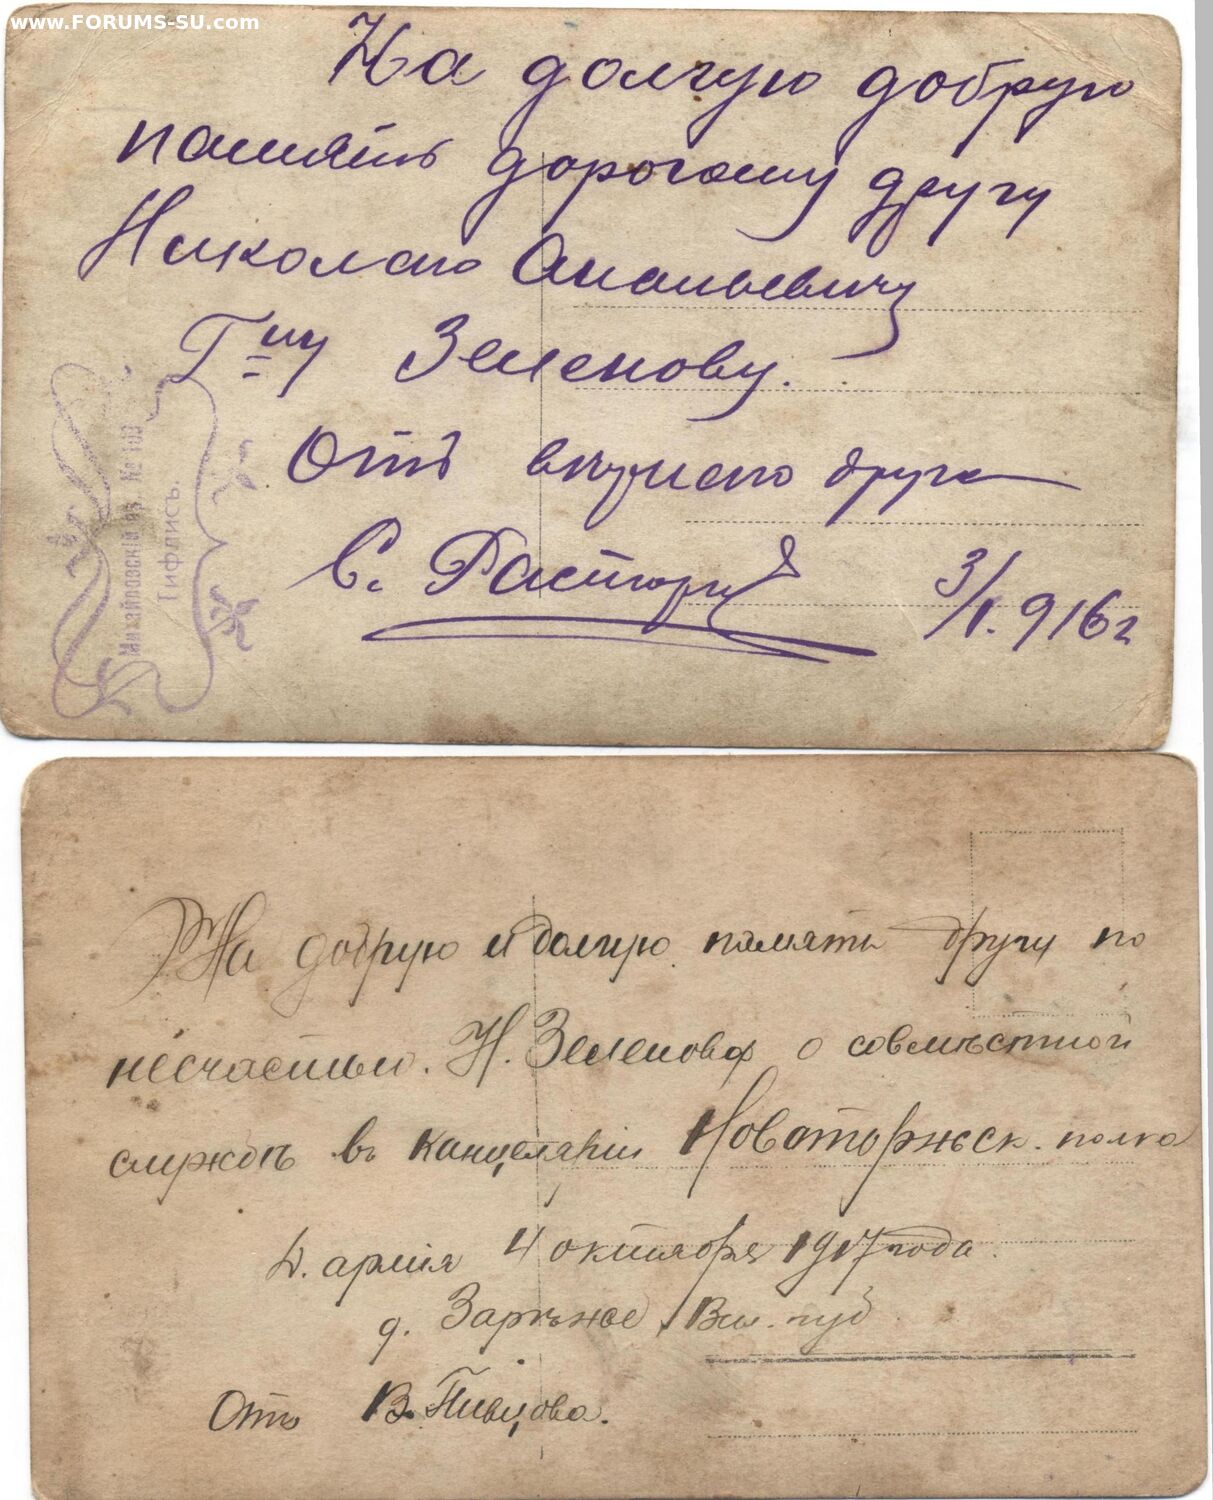 www.FORUMS-SU.com
На долгую добрую
память дорогому другу
Николаю Ананьевичу
Г-ну Зеленову.
Отъ друга
С.
3/I. 916 г
Михайловскій пр. № 103
Тифлисъ.
На добрую и долгую память другу по
несчастью. Н. Зеленову о совмѣстной
службѣ въ канцеляріи Новоторжск. полка
Д. армія 4 октября 1917 года.
д. Зарѣчное Вил. губ.
Отъ В. Пивцова.